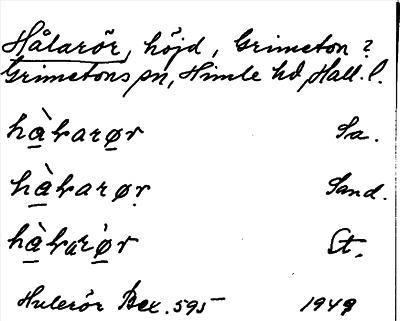 Hålarör, höjd, Grimeton?
Grimetons sn, Himle hd, Hall. l.
hàlarør Sa.
hàlarør Sand.
hàlarør St.
Hulerör Bex. 595 1949